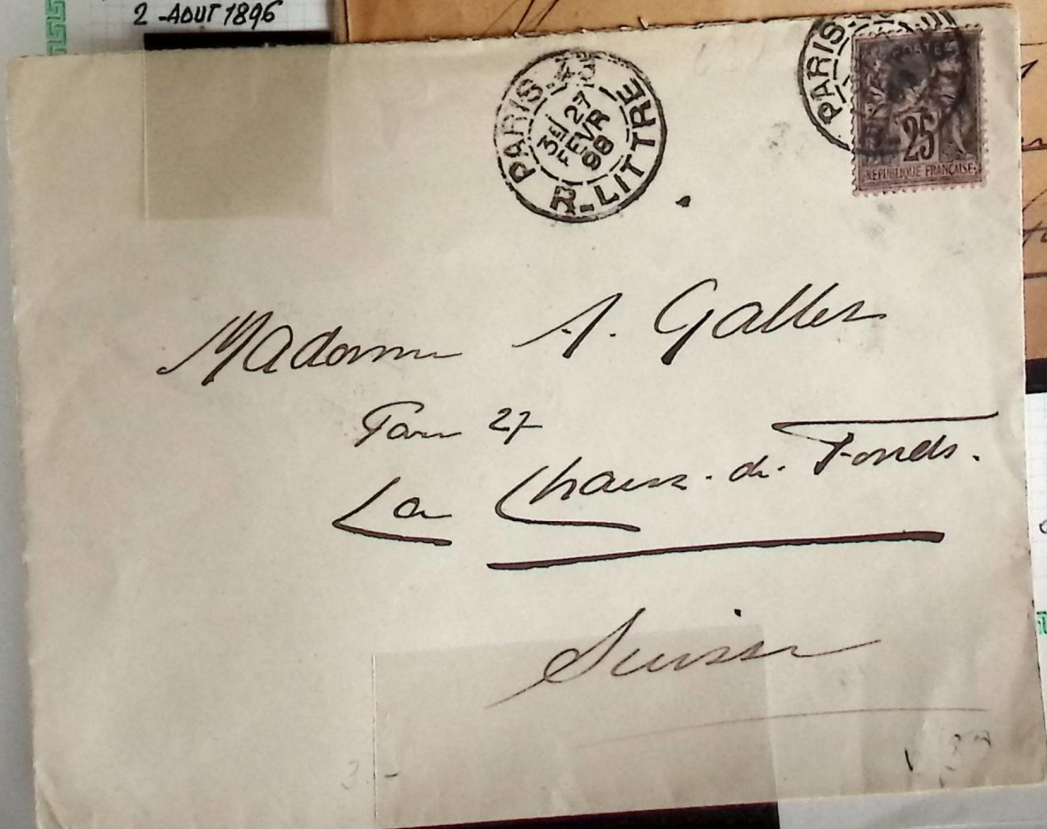 2 - AOUT 1896
PARIS.43
3E/ 27
FEVR
98
R-LITTRE
PARIS
POSTES
25
REPUBLIQUE FRANÇAISE
Madame A. Galler
27
La Chaux-de-Fonds.
Suisse
3.-